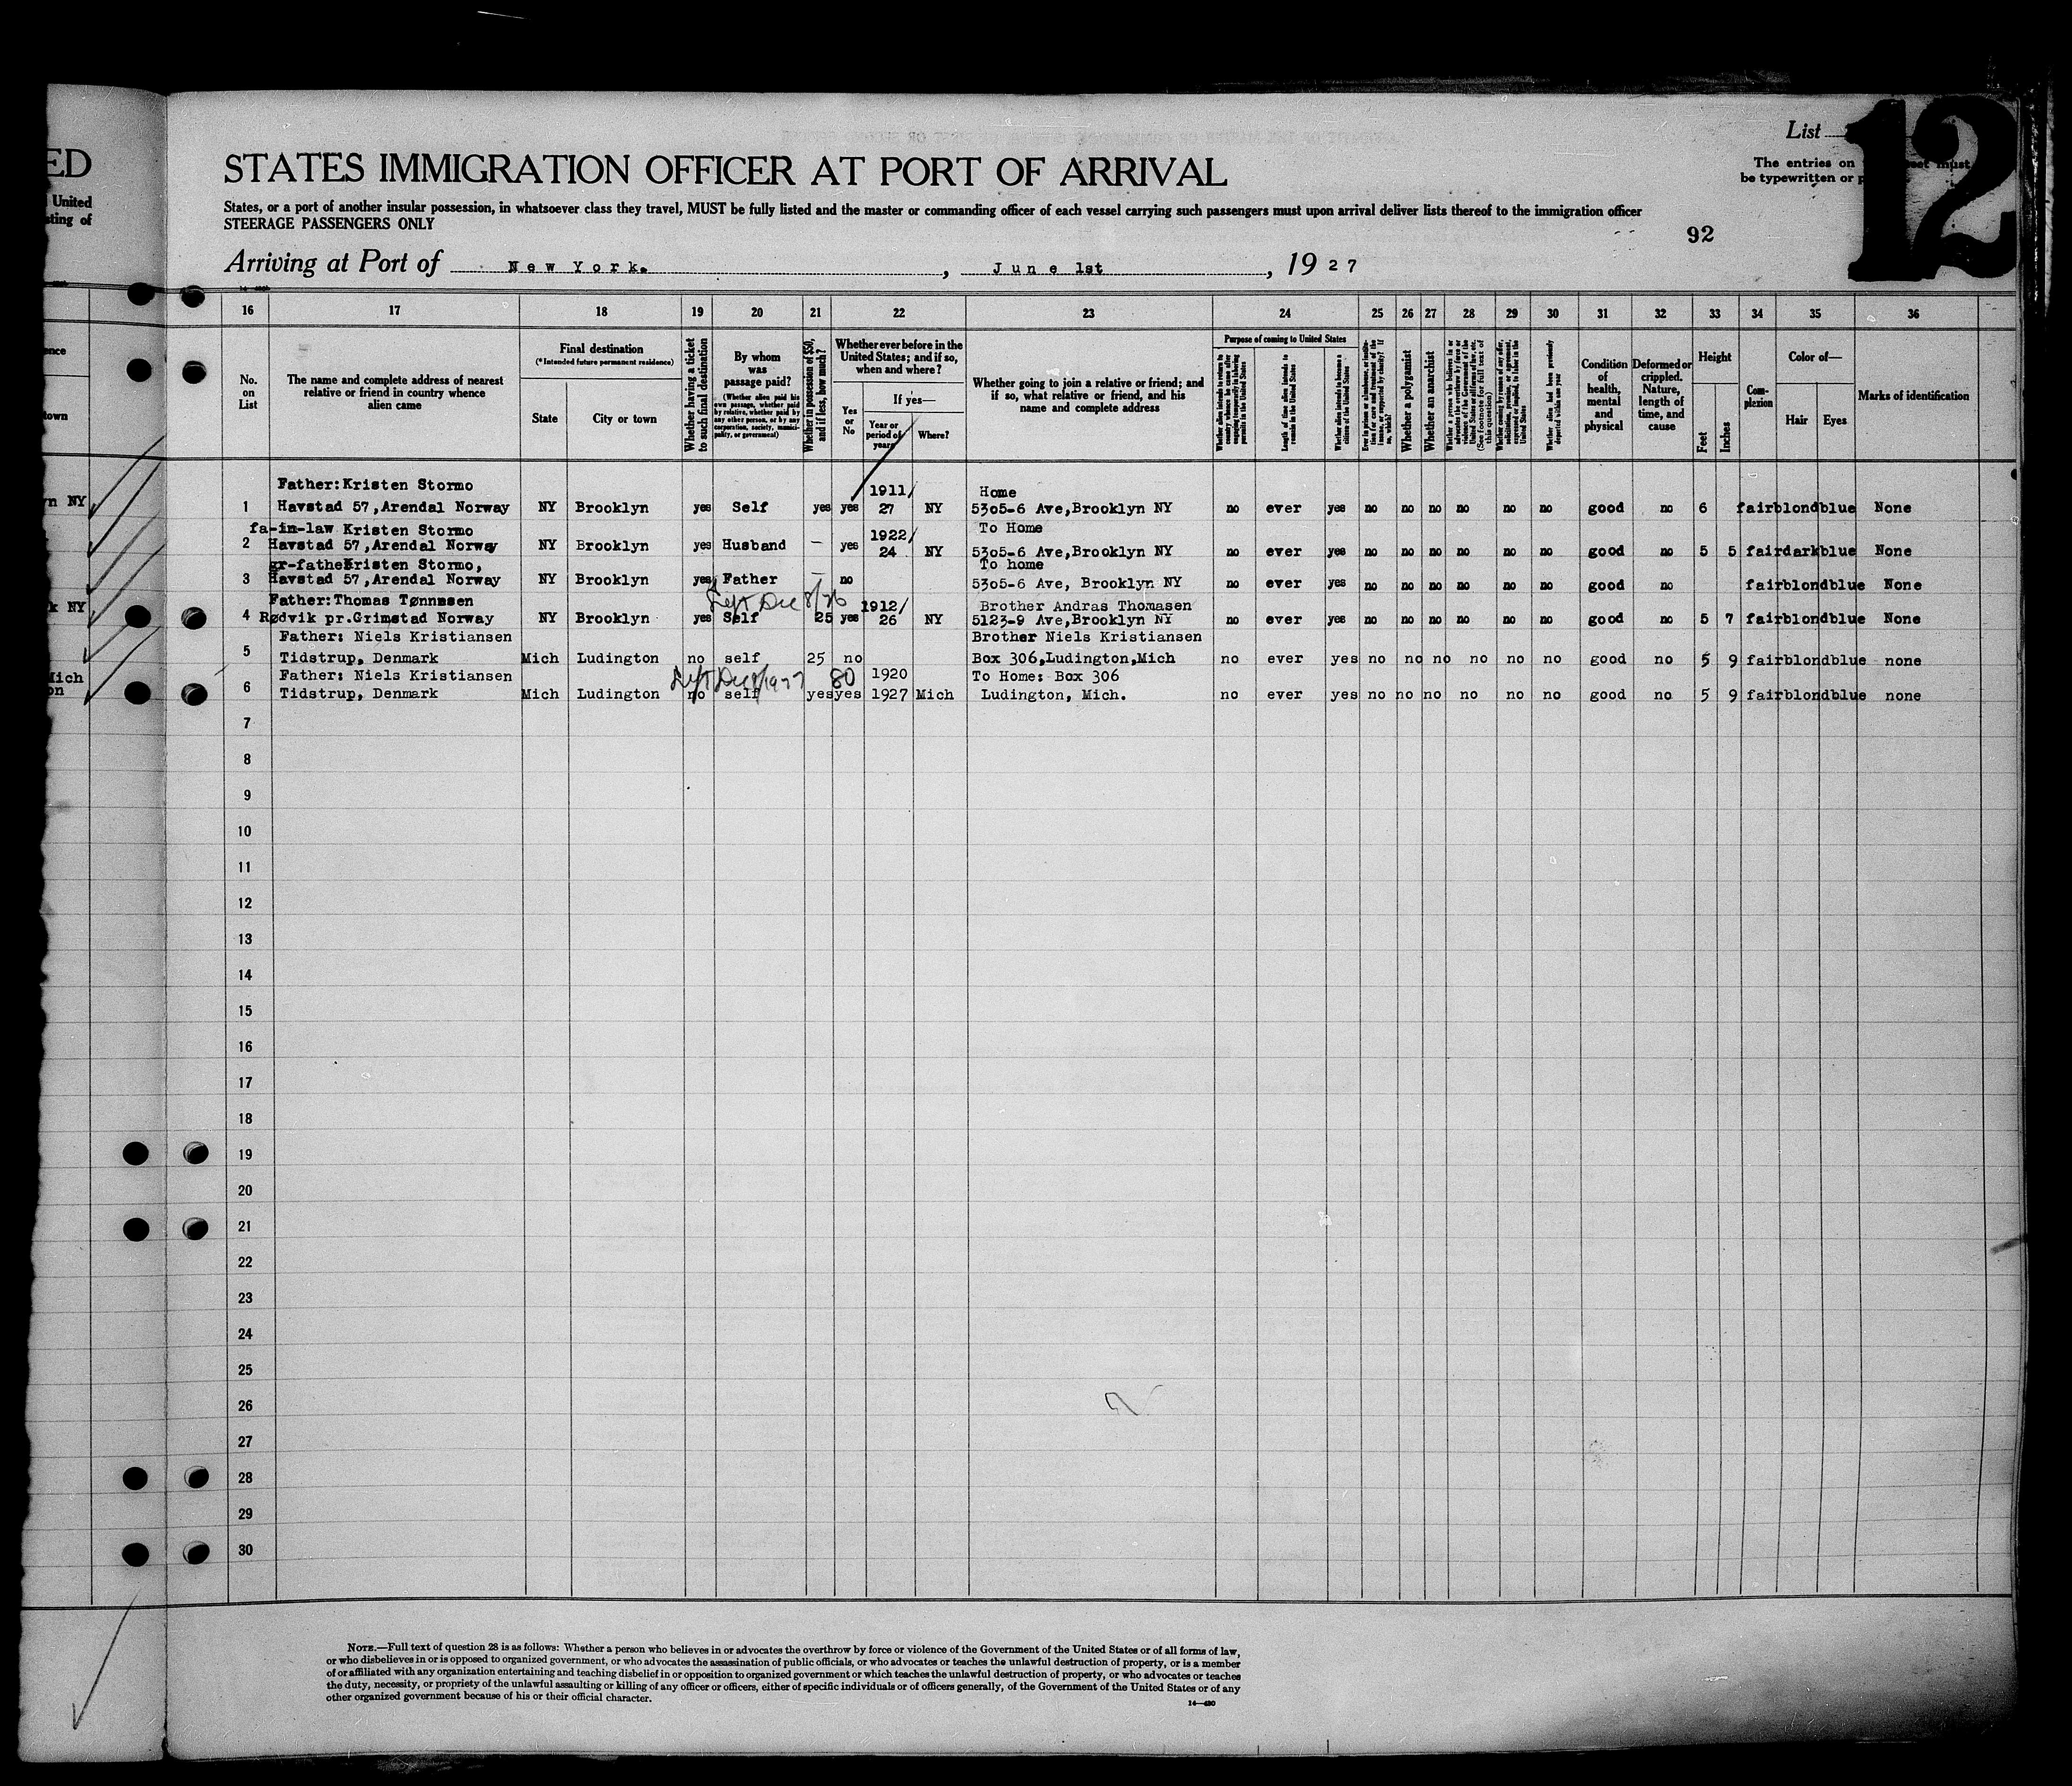 ED
United
sting of
STATES IMMIGRATION OFFICER AT PORT OF ARRIVAL
List
12
The entries on
must
be typewritten or
States, or a port of another insular possession, in whatsoever class they travel, MUST be fully listed and the master or commanding officer of each vessel carrying such passengers must upon arrival deliver lists thereof to the immigration officer
STEERAGE PASSENGERS ONLY
92
Arriving at Port of New York. , June 1st , 1927
16 17 18 19 20 21 22 23 24 25 26 27 28 29 30 31 32 33 34 35 36
No. on List
The name and complete address of nearest relative or friend in country whence alien came
Final destination
(*Intended future permanent residence)
State
City or town
Whether having a ticket to such final destination
By whom was passage paid?
(Whether alien paid his own passage, whether paid by relative, whether paid by any other person, or by any corporation, society, municipality, or government)
Whether in possession of $50, and if less, how much?
Whether ever before in the United States; and if so, when and where?
Yes or No
If yes—
Year or period of years
Where?
Whether going to join a relative or friend; and if so, what relative or friend, and his name and complete address
Purpose of coming to United States
Length of time alien intends to remain in the United States
Whether alien intends to become a citizen of the United States
Whether a polygamist
Whether an anarchist
(See footnote for full text of this question)
Condition of health, mental and physical
Deformed or crippled. Nature, length of time, and cause
Height
Feet
Inches
Complexion
Color of—
Hair
Eyes
Marks of identification
Father:Kristen Stormo 1911/ Home
1 Havstad 57,Arendal Norway NY Brooklyn yes Self yes yes 27 NY 5305-6 Ave,Brooklyn NY no ever yes no no no no no no good no 6 fair blond blue None
fa-in-law Kristen Stormo 1922/ To Home
2 Havstad 57,Arendal Norway NY Brooklyn yes Husband — yes 24 NY 5305-6 Ave,Brooklyn NY no ever yes no no no no no no good no 5 5 fair dark blue None
gr-father Kristen Stormo, To home
3 Havstad 57,Arendal Norway NY Brooklyn yes Father — no 5305-6 Ave, Brooklyn NY no ever yes no no no no no no good no fair blond blue None
Father:Thomas Tønnesen Left Dec 8/26 1912/ Brother Andras Thomasen
4 Rødvik pr.Grimstad Norway NY Brooklyn yes Self 25 yes 26 NY 5123-9 Ave,Brooklyn NY no ever yes no no no no no no good no 5 7 fair blond blue None
Father: Niels Kristiansen Brother Niels Kristiansen
5 Tidstrup, Denmark Mich Ludington no self 25 no Box 306,Ludington,Mich no ever yes no no no no no no good no 5 9 fair blond blue none
Father: Niels Kristiansen Left 80 1920 To Home: Box 306
6 Tidstrup, Denmark Mich Ludington no self yes yes 1927 Mich Ludington, Mich. no ever yes no no no no no no good no 5 9 fair blond blue none
7
8
9
10
11
12
13
14
15
16
17
18
19
20
21
22
23
24
25
26
27
28
29
30
NOTE.—Full text of question 28 is as follows: Whether a person who believes in or advocates the overthrow by force or violence of the Government of the United States or of all forms of law,
or who disbelieves in or is opposed to organized government, or who advocates the assassination of public officials, or who advocates or teaches the unlawful destruction of property, or is a member
of or affiliated with any organization entertaining and teaching disbelief in or opposition to organized government or which teaches the unlawful destruction of property, or who advocates or teaches
the duty, necessity, or propriety of the unlawful assaulting or killing of any officer or officers, either of specific individuals or of officers generally, of the Government of the United States or of any
other organized government because of his or their official character.
14—480